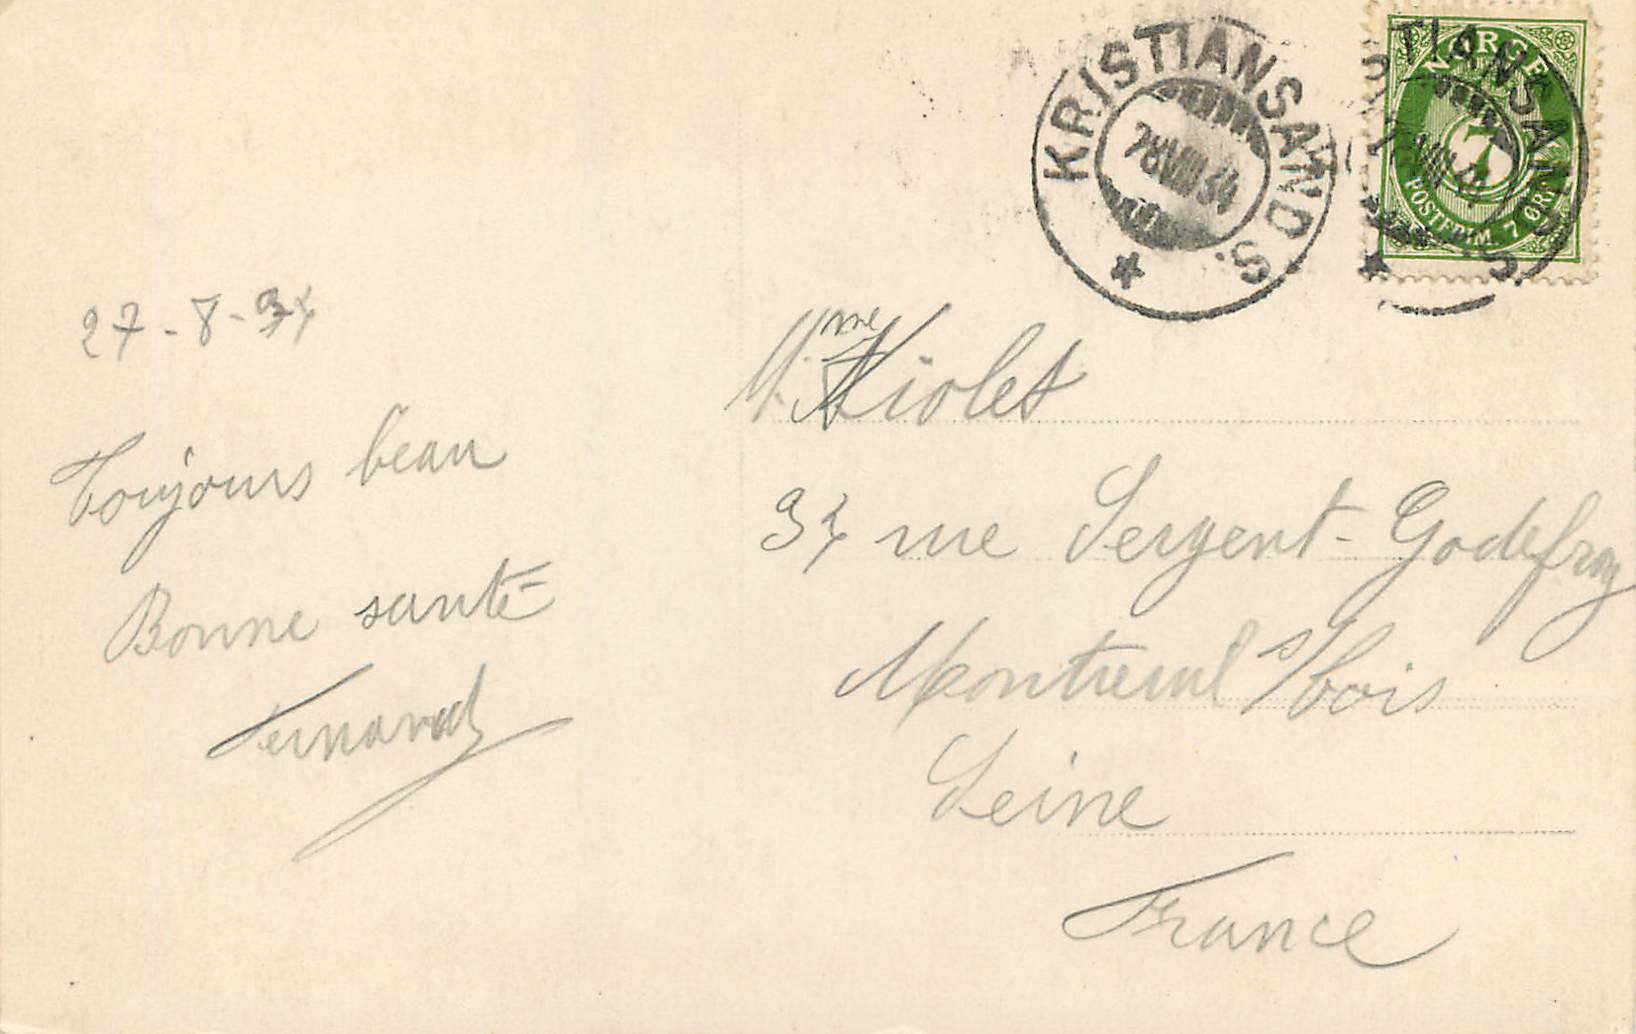 KRISTIANSAND S.
28 VIII 34
NORGE
7
POSTFRIM. 7 ØRE
TIANSAND S.
27-8-34
Toujours beau
Bonne santé
Fernand
Mme Violet
34 rue Sergent-Godefroy
Montreuil s/bois
Seine
France